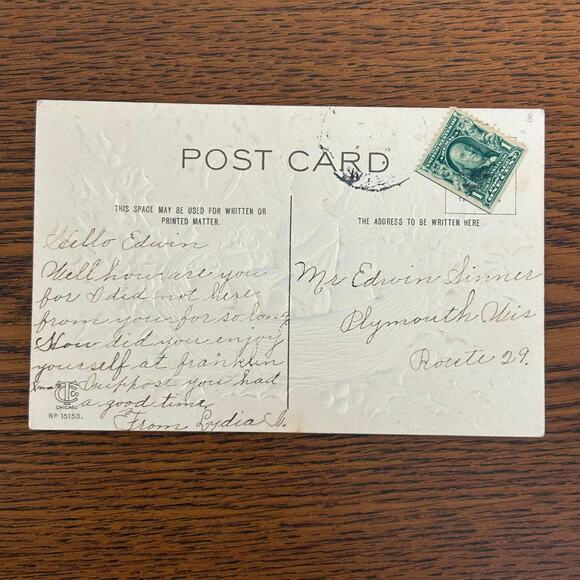 8
POST CARD
THIS SPACE MAY BE USED FOR WRITTEN OR
PRINTED MATTER.
THE ADDRESS TO BE WRITTEN HERE
Hello Edwin
Well how are you
for I did not here
from you for so long
How did you enjoy
yourself at franklin
Xmas I suppose you had
a good time
From Lydia
Mr Edwin Sinner
Plymouth Wis
Route 29.
CHICAGO
Nº 15153.